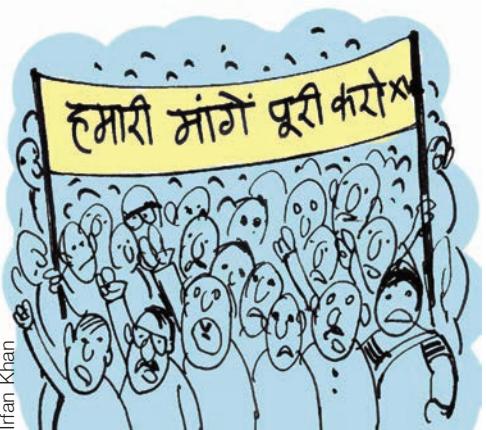 हमारी मांगें पूरी करो
Irfan Khan